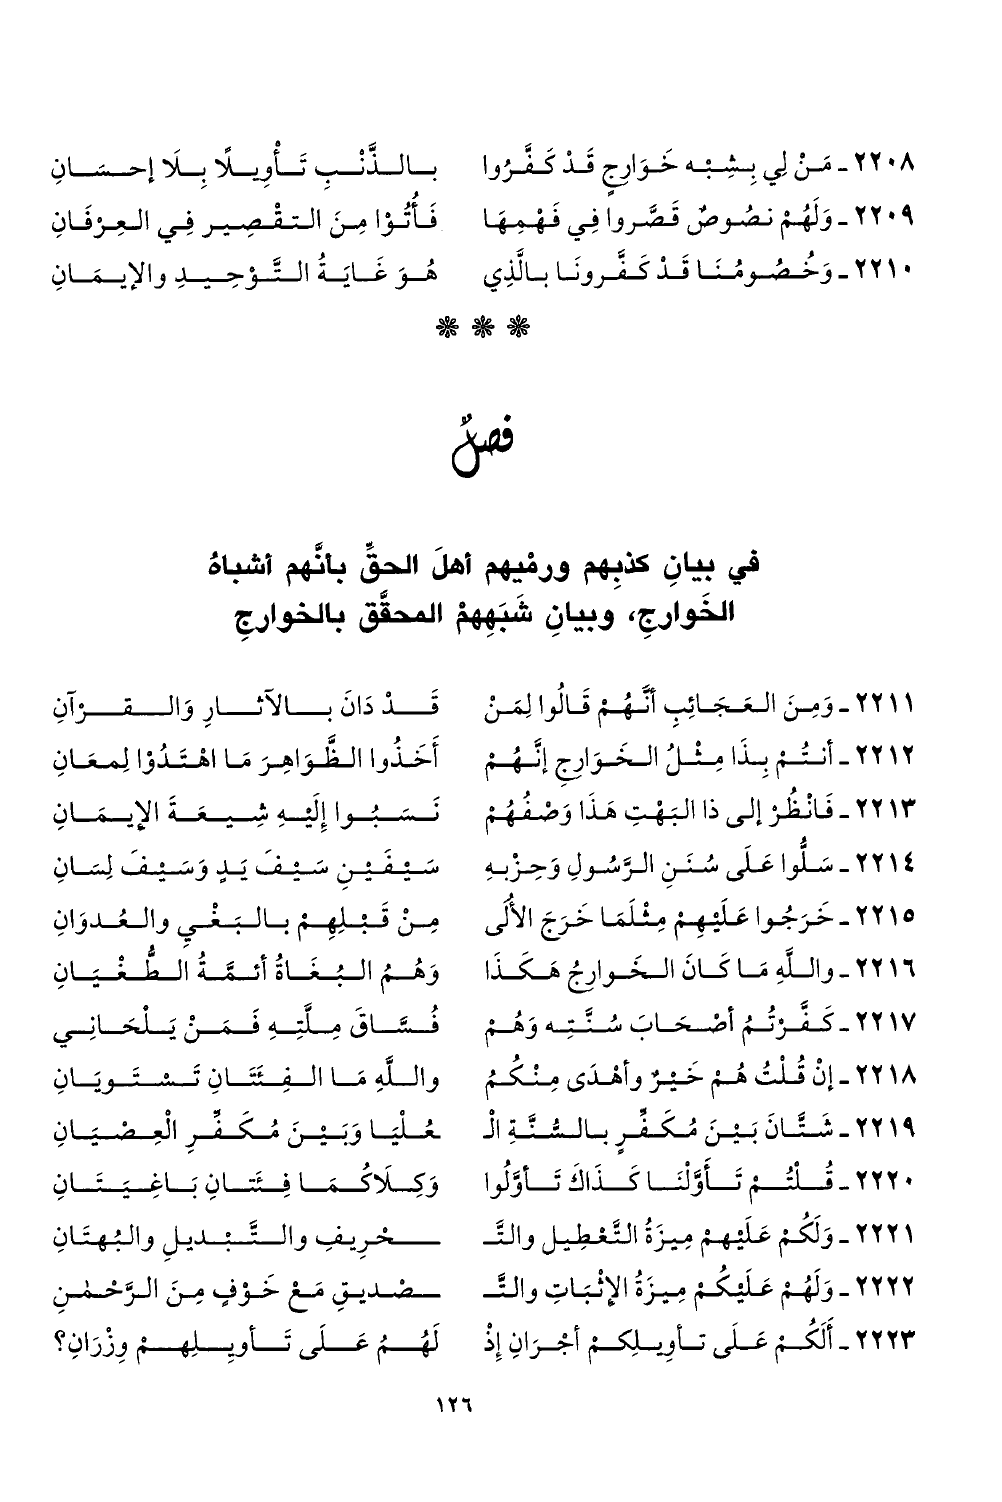 ٢٢٠٨ - مَنْ لِي بِشِبْه خَوَارِجٍ قَدْ كَفَّرُوا بالذَّنْبِ تَأْوِيلًا بِلَا إحسَانِ
٢٢٠٩ - وَلَهُمْ نصُوصٌ قَصَّروا فِي فَهْمِهَا فَأُتُوْا مِنَ التقْصِيرِ فِي العِرْفَانِ
٢٢١٠ - وَخُصُومُنَا قَدْ كَفَّرونَا بالَّذِي هُوَ غَايَةُ التَّوْحِيدِ والإيمَانِ
❋ ❋ ❋
فصلٌ
في بيانِ كذبِهم ورمْيهم أهلَ الحقِّ بأنَّهم أشباهُ
الخَوارجِ، وبيانِ شَبَهِهمْ المحقَّق بالخوارجِ
٢٢١١ - وَمِنَ العَجَائِبِ أنَّهُمْ قَالُوا لِمَنْ قَدْ دَانَ بالآثارِ وَالقرْآنِ
٢٢١٢ - أنتُمْ بِذَا مِثْلُ الخَوَارجِ إنَّهُمْ أَخَذُوا الظَّوَاهِرَ مَا اهْتَدَوْا لِمعَانِ
٢٢١٣ - فَانْظُرْ إلى ذا البَهْتِ هَذَا وَصْفُهُمْ نَسَبُوا إلَيْهِ شِيعَةَ الإيمَانِ
٢٢١٤ - سَلُّوا عَلَى سُنَنِ الرَّسُولِ وَحِزْبهِ سَيْفَيْنِ سَيْفَ يَدٍ وَسَيْفَ لِسَانِ
٢٢١٥ - خَرَجُوا عَلَيْهِمْ مِثْلَمَا خَرَجَ الأُلَى مِنْ قَبْلِهِمْ بالبَغْيِ والعُدوَانِ
٢٢١٦ - واللَّهِ مَا كَانَ الخَوارِجُ هَكَذَا وَهُمُ البُغَاةُ أئمَّةُ الطُّغْيَانِ
٢٢١٧ - كَفَّرْتُمُ أصْحَابَ سُنَّتِه وَهُمْ فُسَّاقَ مِلَّتِهِ فَمَنْ يَلْحَانِي
٢٢١٨ - إنْ قُلْتُ هُمْ خَيْرٌ وأهْدَى مِنْكُمُ واللَّهِ مَا الفِئَتَانِ تَسْتَوِيَانِ
٢٢١٩ - شَتَّانَ بَيْنَ مُكَفِّرٍ بالسُّنَّةِ الْـ ـعُلْيَا وَبَيْنَ مُكَفِّرِ الْعِصْيَانِ
٢٢٢٠ - قُلْتُمْ تَأَوَّلْنَا كَذَاكَ تَأوَّلُوا وَكِلَاكُمَا فِئَتانِ بَاغِيَتَانِ
٢٢٢١ - وَلَكُمْ عَلَيْهِمْ مِيزَةُ التَّعْطِيلِ والتَّـ ـحْرِيفِ والتَّبْديلِ والبُهتَانِ
٢٢٢٢ - وَلَهُمْ عَلَيْكُمْ مِيزَةُ الإثْبَاتِ والتَّـ ـصْديقِ مَعْ خَوْفٍ مِنَ الرَّحْمٰنِ
٢٢٢٣ - أَلَكُمْ عَلَى تأويلِكمْ أجْرَانِ إذْ لَهُمُ عَلَى تَأويِلِهِمْ وِزْرَانِ؟
١٢٦